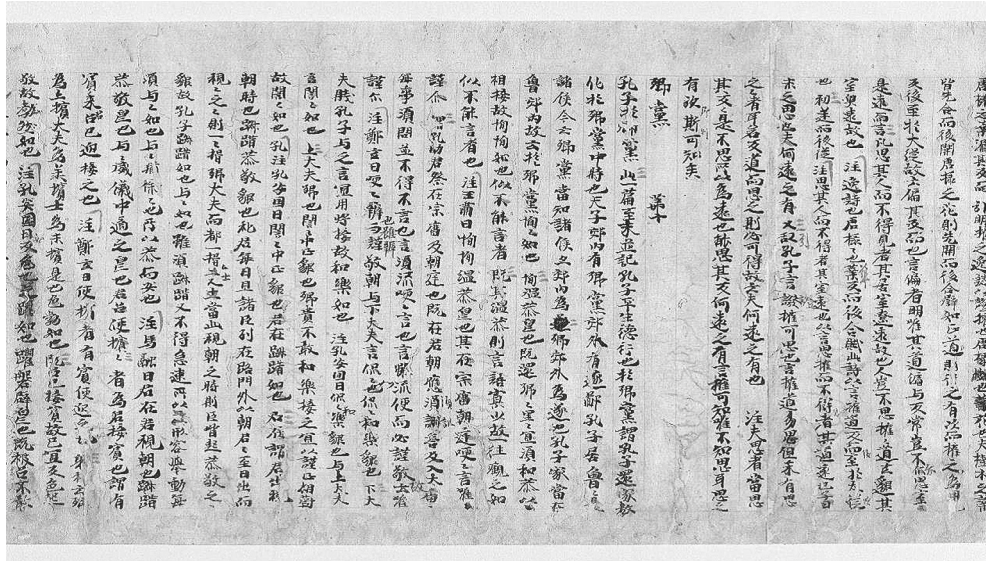 皆先合而後開唐棣之花則先開而後合譬如正道則行之有次而權之爲用
先後至於大從故云偏其反而也言偏者明唯其道偏与反常也豈不爾思室
是遠而言凡思其人而不得見者其居室遼遠故也人豈不思權道玄邈其
室奧遠故也 注逸詩也唐棣栘也華反而後合賦此詩以言權道反而至於大從
也初逆而後從 注思其人而不得者其室遠也以言思權而不得者其道遠也子曰
未之思也夫何遠之有 又引孔子言證權可思也言權道易思但未有思
之者耳若反道而思之則必可得故云夫何遠之有也 注夫思者當思
其反是不思所以爲遠也能思其反何遠之有言權可知唯不知思耳思之
有次斯可知矣
鄉黨 第十
孔子於鄉黨 此一篇至末並記孔子平生德行也於鄉黨謂孔子還家教
化於鄉黨中時也天子郊内有鄉黨郊外有遂鄙孔子居魯々是
諸侯今云鄉黨當知諸侯亦郊内爲鄉郊外爲遂也孔子家當在
魯郊内故云於鄉黨恂々如也 恂々溫恭皃也既還鄉々里宜須和恭以
相接故恂々如也似不能言者 既其溫恭則言語寡少故一往觀之如
似不能言者也 注王肅曰恂々溫恭皃也其在宗廟朝廷便々言唯
謹尒 助君祭在宗廟及朝廷也既在君朝應須訓答及入大廟
每事須問並不得不言也言須流便々言也言雖流便而必謹敬故云唯
謹尒 注鄭玄曰便々辨皃雖辨而謹敬朝与下大夫言侃々如也 侃々和樂皃也下大
夫賤孔子与之言宜用將接故和樂如也 注孔安国曰侃々和樂皃也与上大夫
言誾々如也 上大夫卿也誾々中正皃也卿貴不敢和樂接之宜以謹正相當
故誾々如也 注孔安国曰誾々中正皃也君在踧踖如也 君在謂君出視
朝時也踧踖恭敬皃也礼君每日旦諸臣列在路門外以朝君々至日出而
視々之々則一々揖卿大夫而都一揖士當此視朝之時則臣皆起恭敬之
皃故孔子踧踖如也与々如也雖須踧踖又不得急速所以形容舉動每
須与々如也与々猶徐々也所以恭而安也 注馬融曰君在君視朝也踧踖
恭敬皃也与々威儀中適之皃也君召使擯 擯者爲君接賓也謂有
賓来君召己迎接之也 注鄭玄曰使擯者有賓使迎之也
爲上擯大夫爲承擯士爲末擯是也色勃如也 既召己接賓故己宜變色起
敬故勃然如也 注孔安国曰必變色也足躩如也 躩盤辟皃也既被召不敢